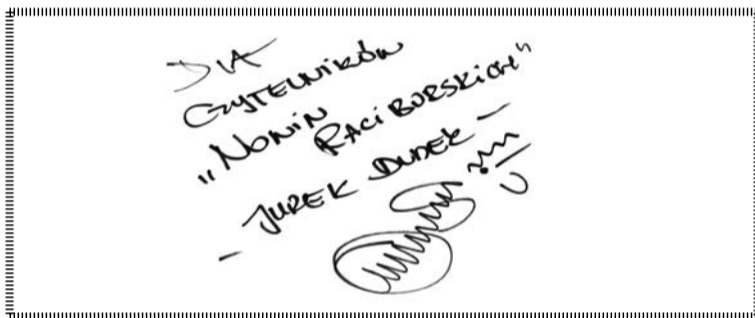 DLA
CZYTELNIKÓW
„NOWIN
RACIBORSKICH”
- JUREK DUDEK -